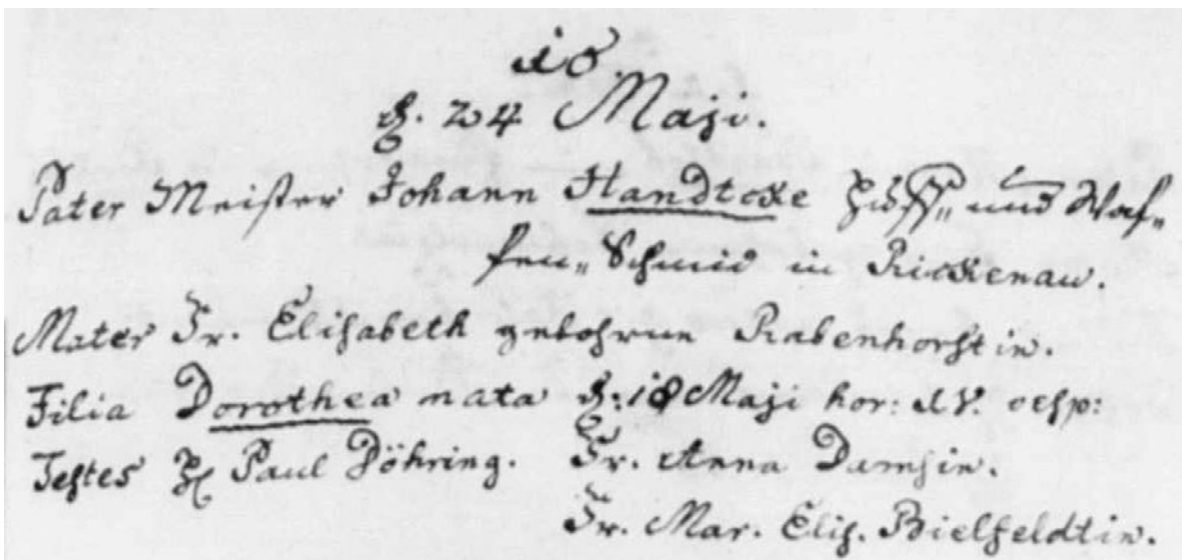 18
d. 24 Maji.
Pater Meister Johann Handtcke Huff„ und Waf„
fen„ Schmid in Rickenau.
Mater Fr. Elisabeth gebohrne Rabenhorstin.
Filia Dorothea nata d. 18 Maji hor: IV. vesp:
Testes H Paul Döhring. Fr. Anna Damsin.
Fr. Mar. Elis. Bielfeldtin.